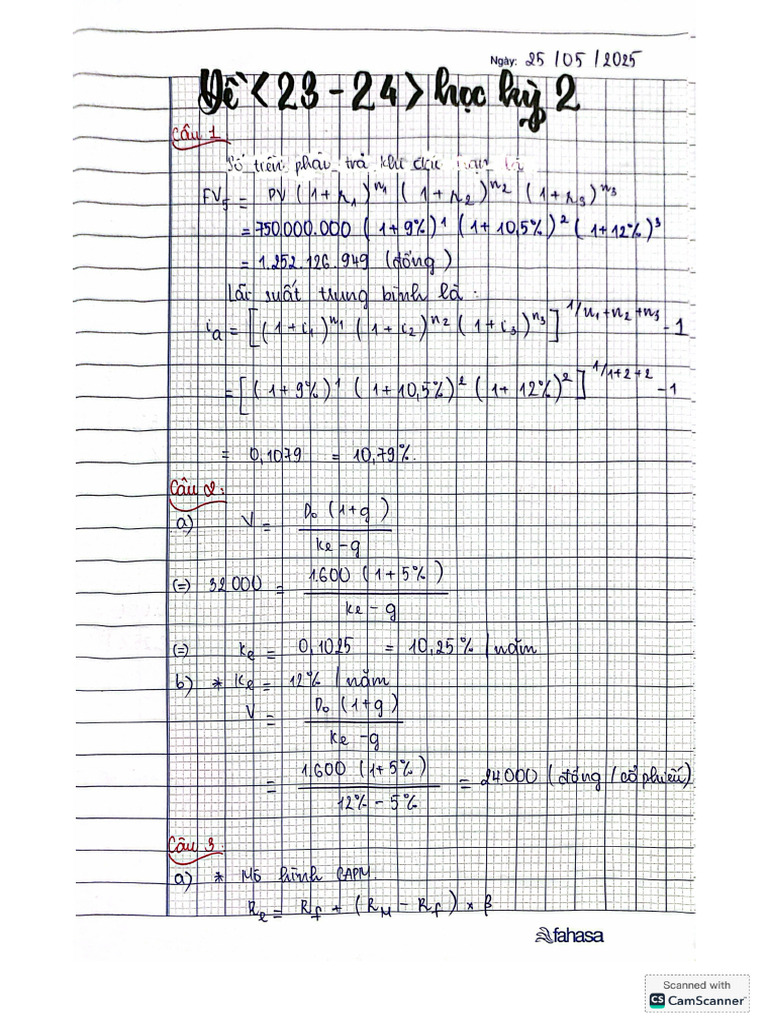 Ngày: 25 / 05 / 2025
Đề <23 - 24> học kỳ 2
Câu 1
Số tiền phải trả khi
FV₅ = PV (1 + r₁)^n₁ (1 + r₂)^n₂ (1 + r₃)^n₃
= 750.000.000 (1 + 9%)¹ (1 + 10,5%)² (1 + 12%)³
= 1.252.126.949 (đồng)
Lãi suất trung bình là :
i_a = [(1 + i₁)^n₁ (1 + i₂)^n₂ (1 + i₃)^n₃]^1/n₁+n₂+n₃ - 1
= [(1 + 9%)¹ (1 + 10,5%)² (1 + 12%)²]^1/1+2+2 - 1
= 0,1079 = 10,79%.
Câu 2:
a) V = D₀ (1+g) / ke - g
(=) 32 000 = 1.600 (1 + 5%) / ke - g
(=) ke = 0,1025 = 10,25% / năm
b) * Ke = 12% / năm
V = D₀ (1+g) / ke - g
= 1.600 (1+5%) / 12% - 5% = 24.000 (đồng / cổ phiếu)
Câu 3.
a) * Mô hình CAPM.
Re = Rf + (RM - Rf) × β
fahasa
Scanned with
CS CamScanner